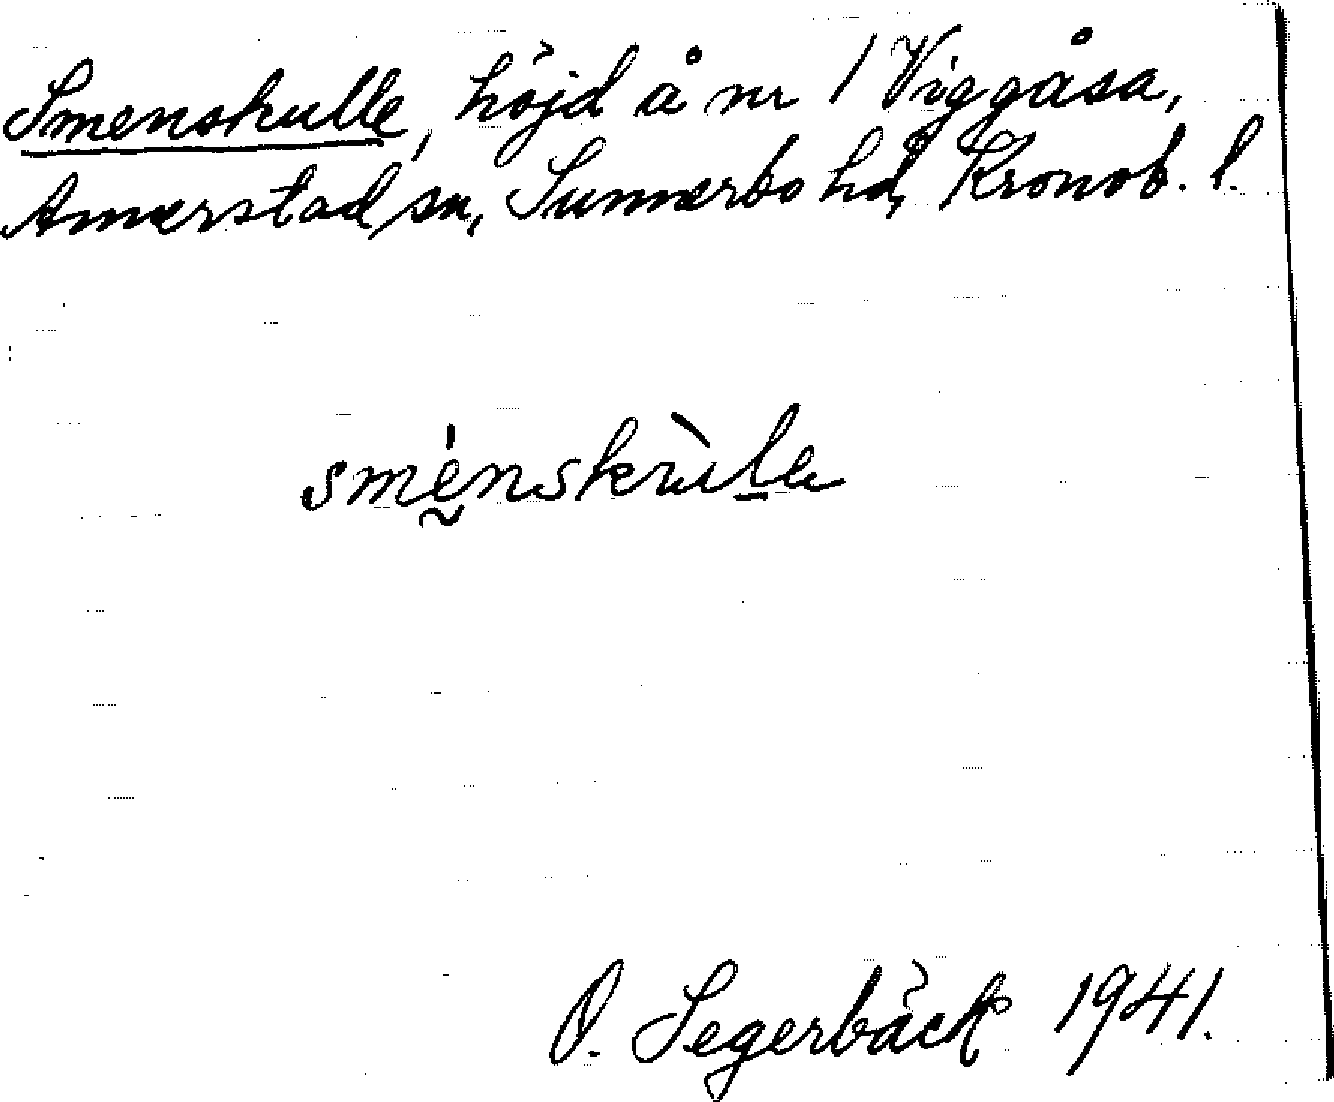 Smenskulle, höjd å nr 1 Viggåsa,
Annerstad sn, Sunnerbo hd, Kronob. l.
sménskùle
O. Segerbäck 1941.